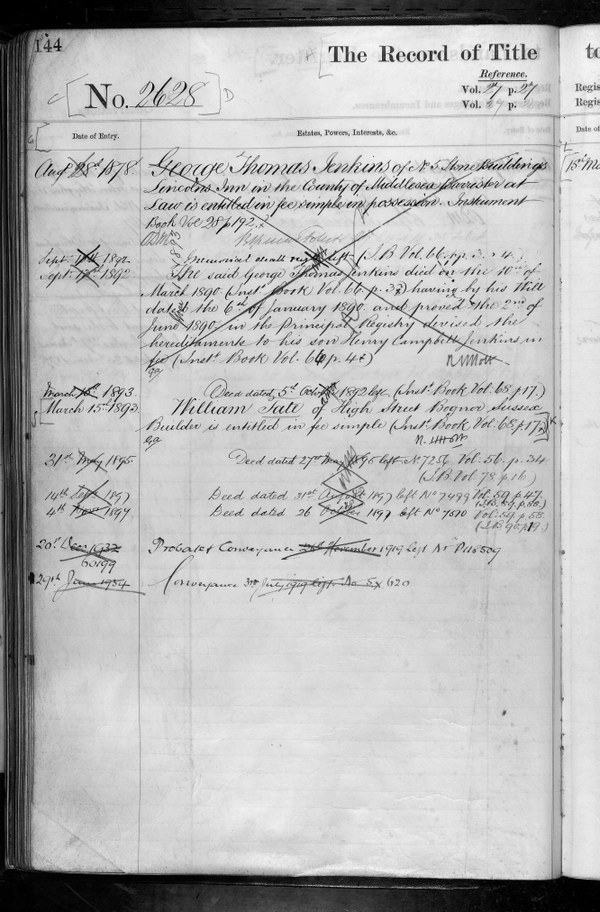 144
The Record of Title
Reference.
Vol. 27 p. 27
Vol. 27 p.
No. 2628
Date of Entry.
Estates, Powers, Interests, &c.
Augt 28th 1878
George Thomas Jenkins of No 5 Stone Buildings
Lincolns Inn in the County of Middlesex Barrister at
Law is entitled in fee simple in possession. Instrument
Book Vol 28 p 192.
Sept. 1892
Memorial left (I.B Vol. 66. p. 4.)
Sept. 17th 1892
The said George Thomas Jenkins died on the 10th of
March 1890 (Inst. Book Vol. 66. p. 3) having by his Will
dated the 6th of January 1890 and proved the 2nd of
June 1890 in the Principal Registry devised the
hereditaments to his son Henry Campbell Jenkins in
fee (Inst. Book Vol. 66 p. 4)
March 1893.
Deed dated 5th Octr 1892 left (Inst. Book Vol. 68 p 17.)
March 15th 1893
William Tate of High Street Bognor Sussex
Builder is entitled in fee simple (Inst. Book Vol. 68. p 17.)
31st May 1895
Deed dated 27th May 1895 left No 7256 Vol. 56. p. 34
(I.B. Vol 78 p. 16)
14th Sept 1897
Deed dated 31st August 1897 left No 7499 Vol. 59 p. 47.
4th Novr 1897
Deed dated 26 October 1897 left No 7590 Vol. 59 p. 58.
(I.B. 90 p 19.)
20th Dec 1932
Probate & Conveyance November 1919 left No
60199
29th June 1934
Conveyance 3rd July 1919 left No 620
to
Regis
Regis
Date of